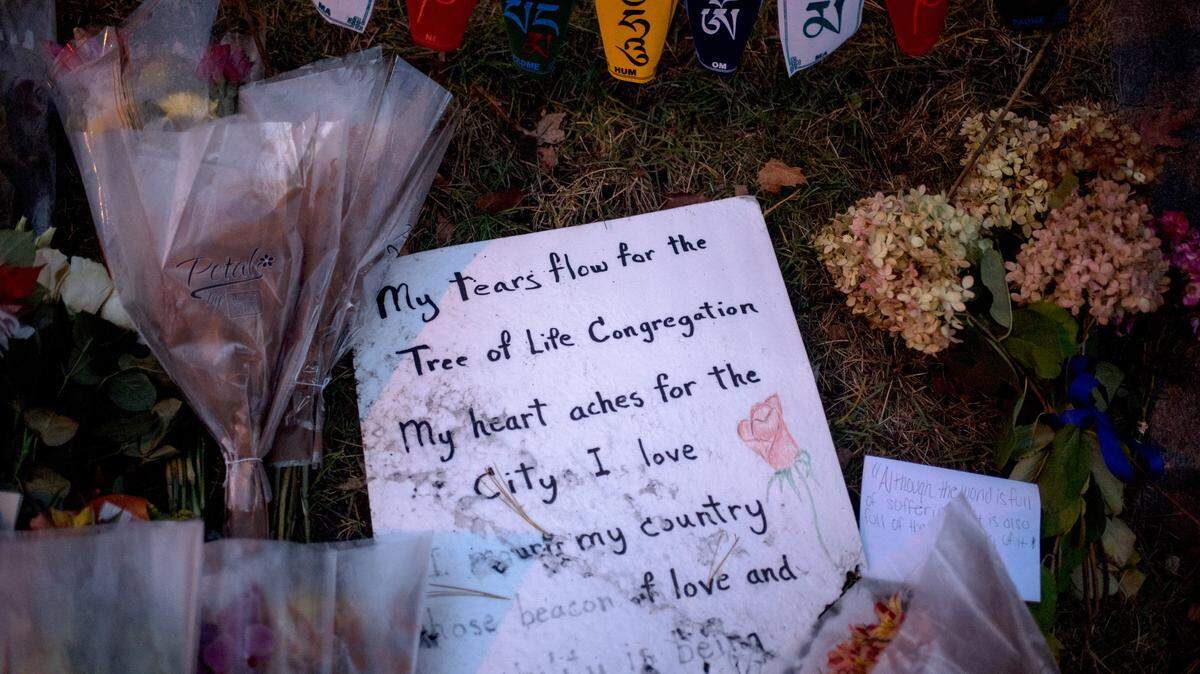 MA NI PADME HUM ཨོཾ OM མ MA PADME
Petals
by
My tears flow for the
Tree of Life Congregation
My heart aches for the
City I love
I mourn my country
whose beacon of love and
is being
"Although the world is full
of suffering it is also
full of the of it